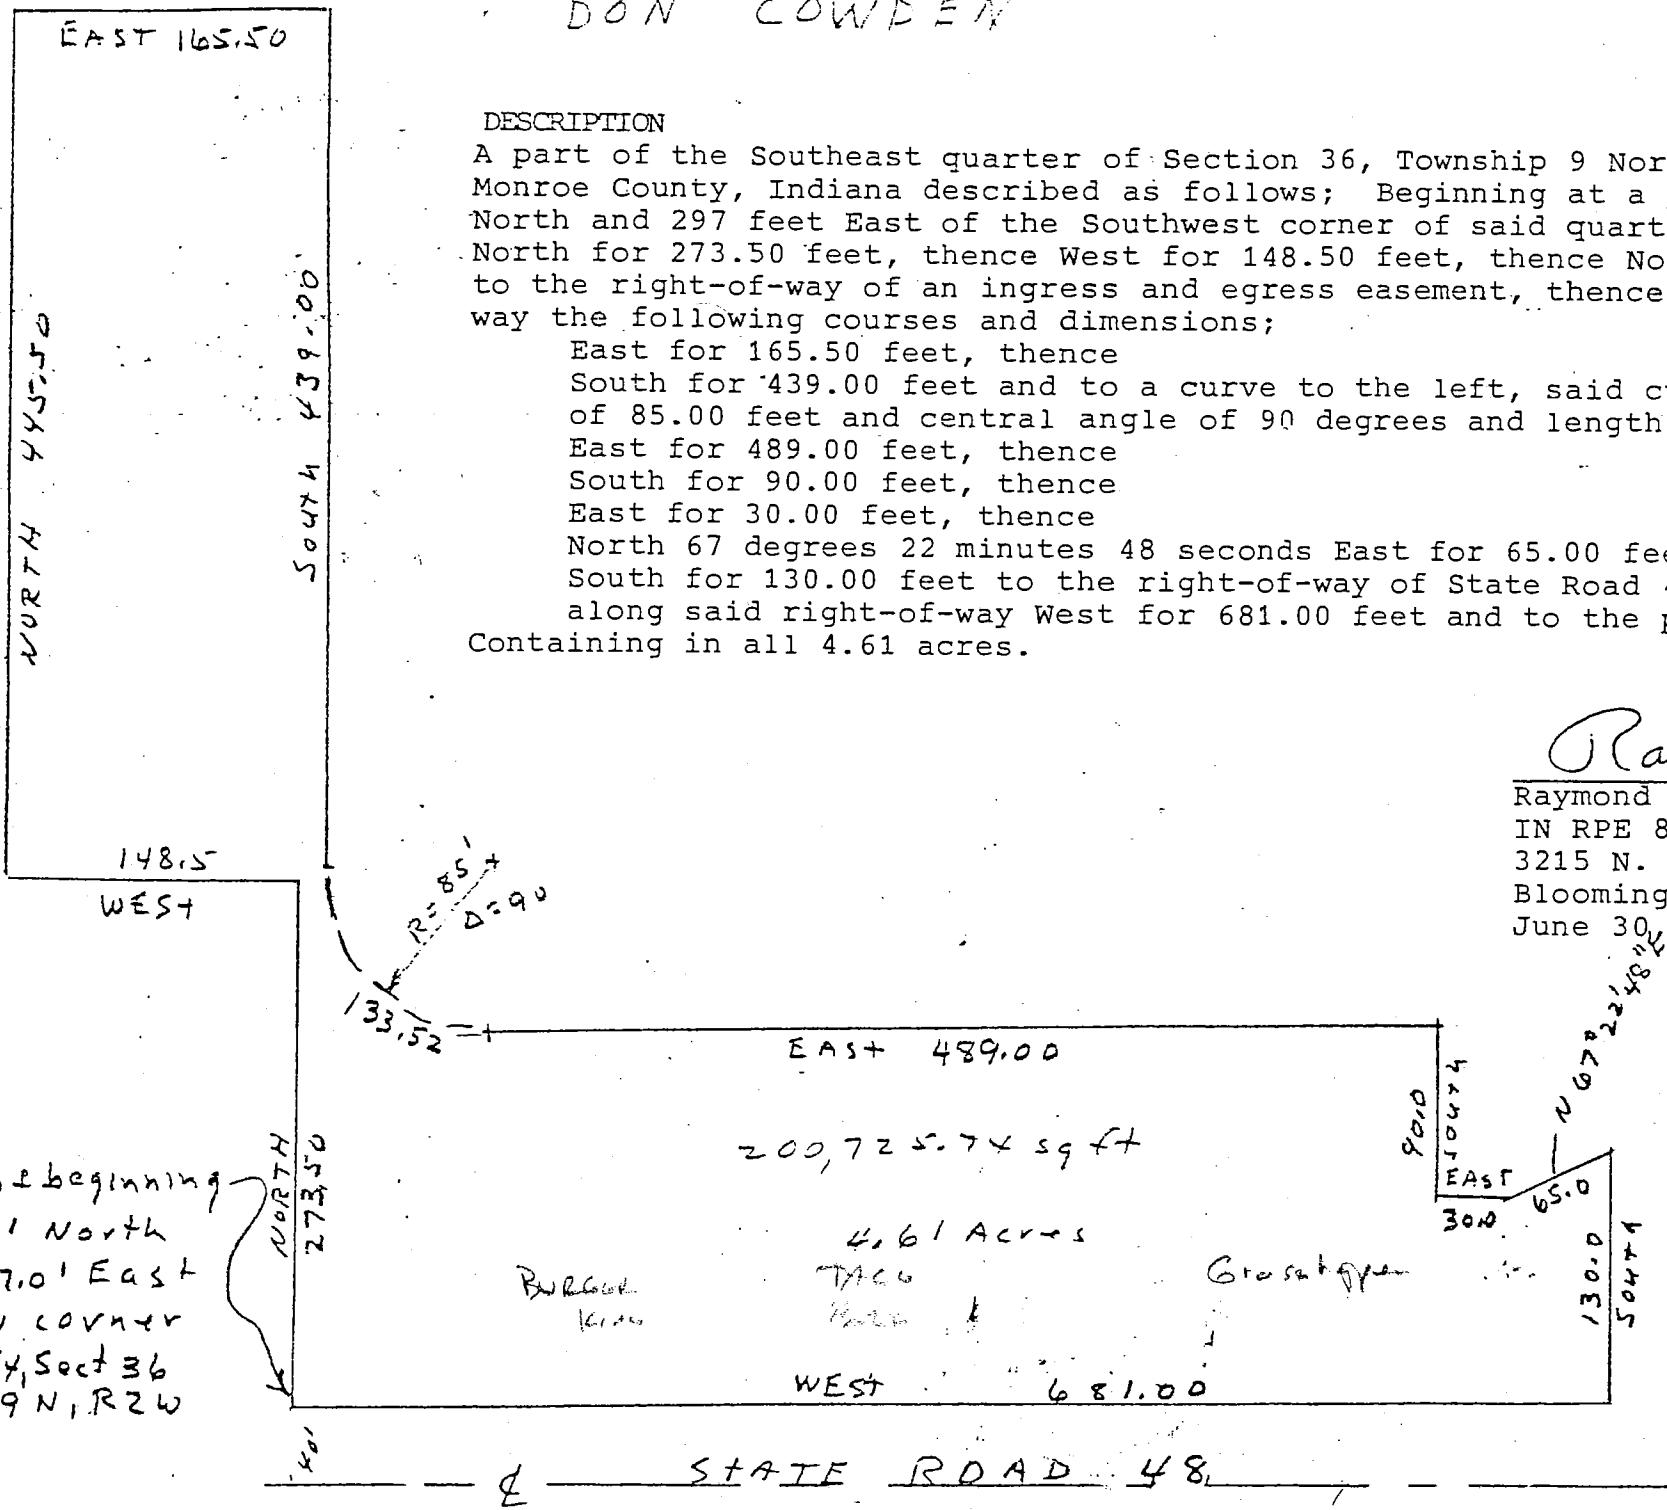 DON COWDEN
EAST 165.50
NORTH 445.50
South 439.00'
DESCRIPTION
A part of the Southeast quarter of Section 36, Township 9 Nor
Monroe County, Indiana described as follows; Beginning at a
North and 297 feet East of the Southwest corner of said quart
North for 273.50 feet, thence West for 148.50 feet, thence No
to the right-of-way of an ingress and egress easement, thence
way the following courses and dimensions;
East for 165.50 feet, thence
South for 439.00 feet and to a curve to the left, said c
of 85.00 feet and central angle of 90 degrees and length
East for 489.00 feet, thence
South for 90.00 feet, thence
East for 30.00 feet, thence
North 67 degrees 22 minutes 48 seconds East for 65.00 fee
South for 130.00 feet to the right-of-way of State Road
along said right-of-way West for 681.00 feet and to the p
Containing in all 4.61 acres.
Ra
Raymond
IN RPE 8
3215 N.
Blooming
June 30,
148.5
WEST
R=85'
Δ=90
133.52
EAST 489.00
90.0
South
EAST
30.0
N 67° 22' 48" E
65.0
130.0
South
NORTH
273.50
200,725.74 sq ft
4.61 Acres
BURGER
King
TACO
Grasshopper
WEST 681.00
beginning
' North
7.0' East
corner
4, Sect 36
9 N, R2W
40'
℄ STATE ROAD 48